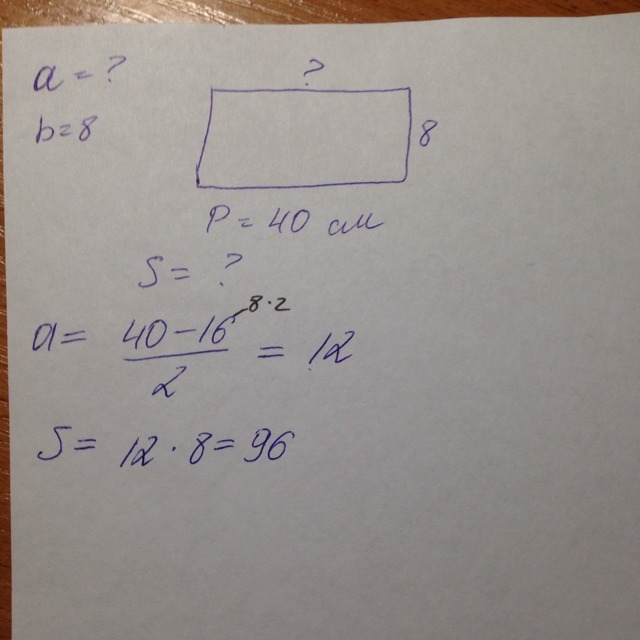 a = ?
?
b=8
8
P = 40 см
S = ?
8·2
a = (40 - 16)/2 = 12
S = 12 · 8 = 96